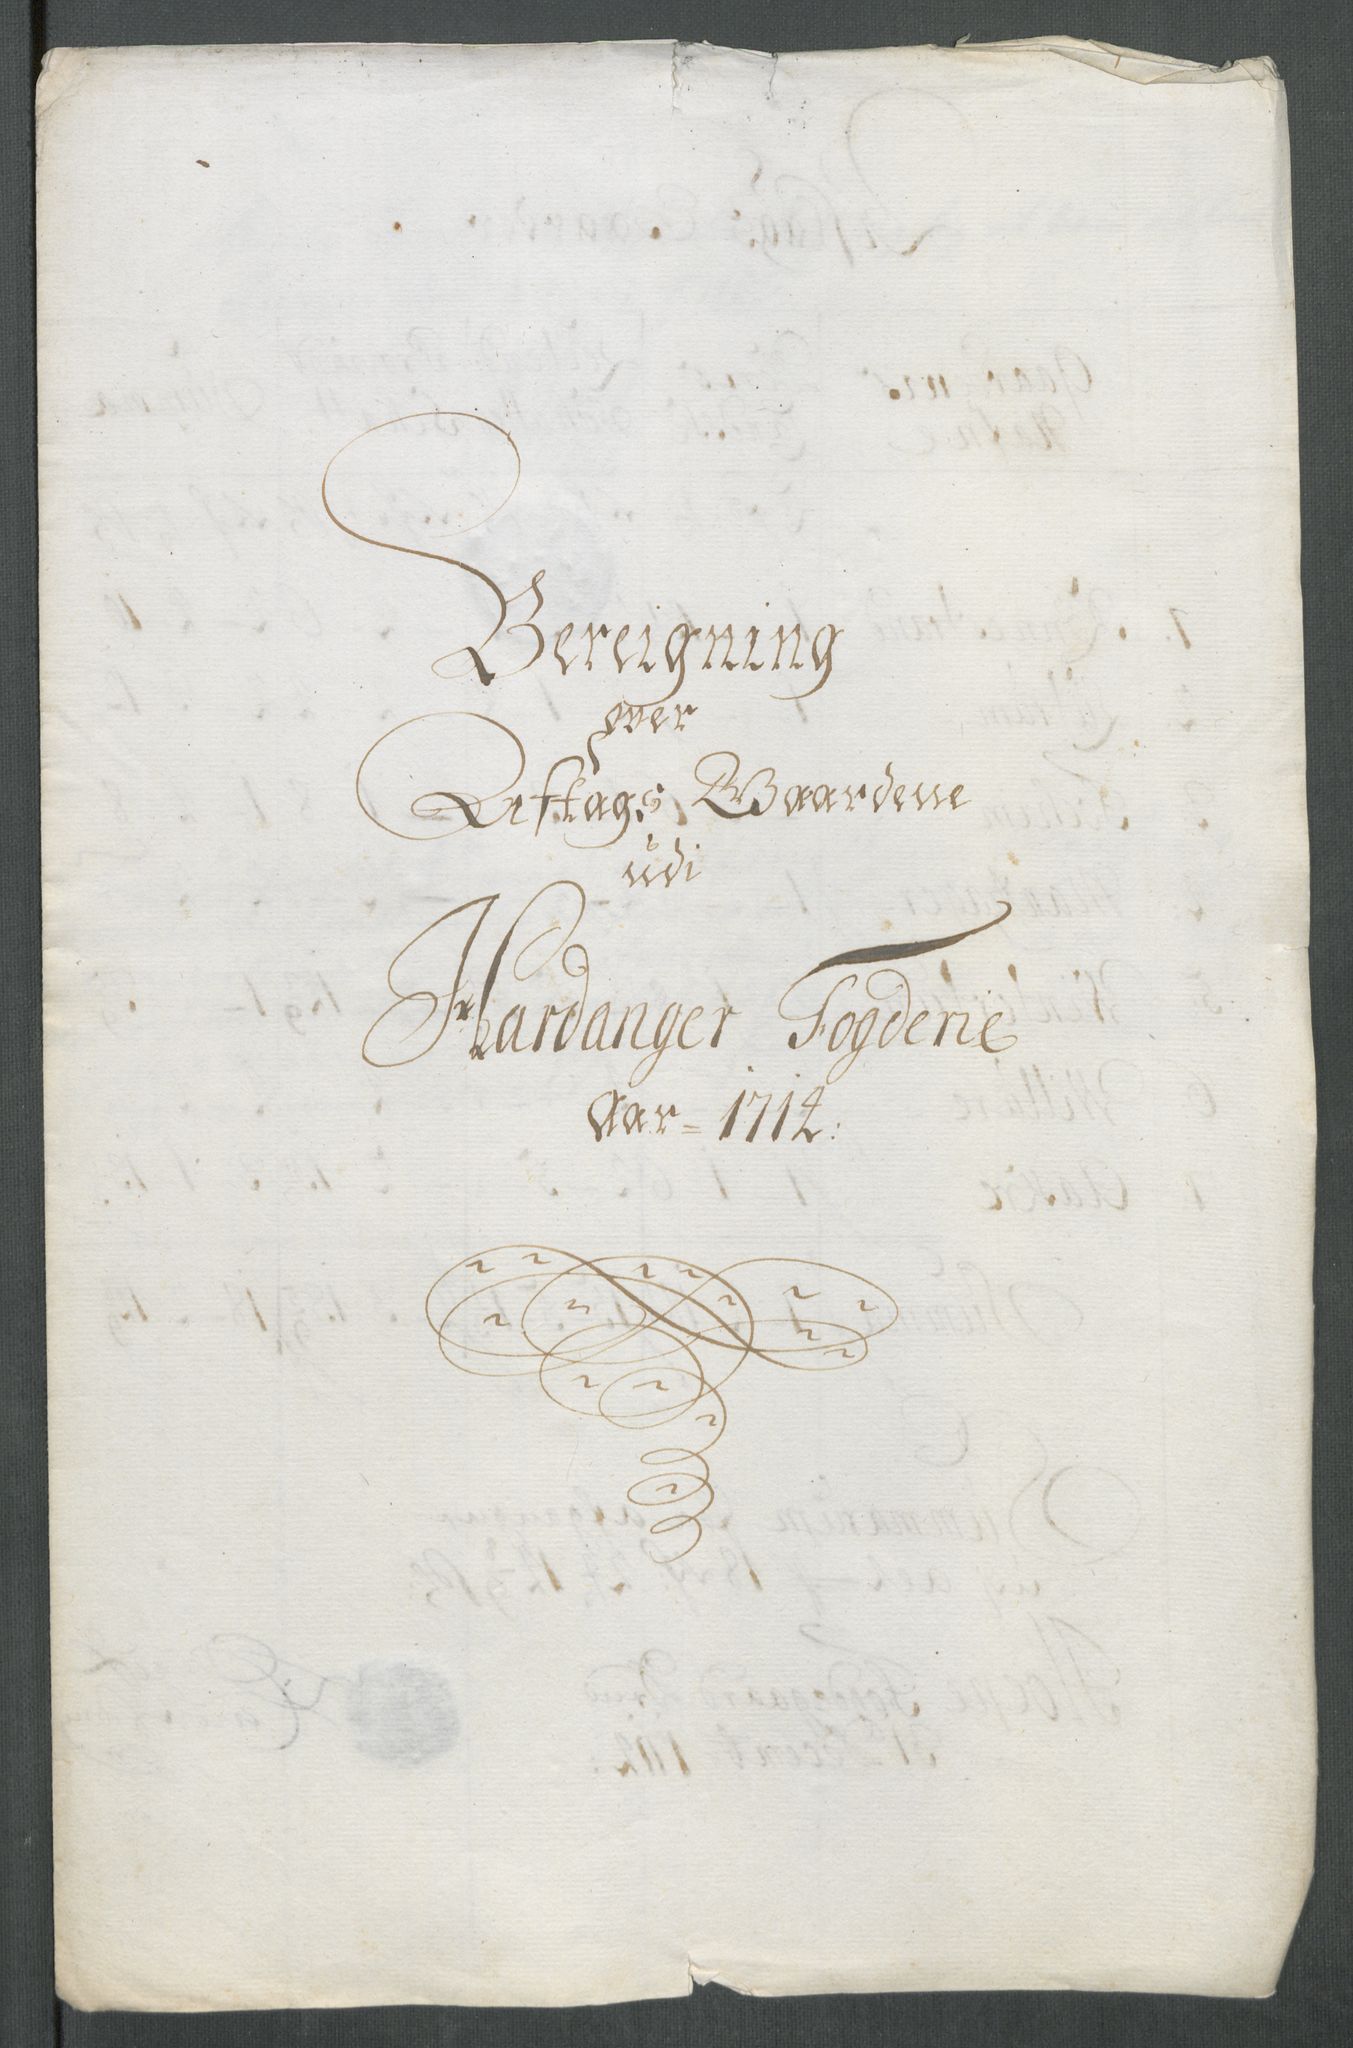 Bereigning
over
Afftags Gaardene
udi
Hardanger Fogderie
Aar = 1712: